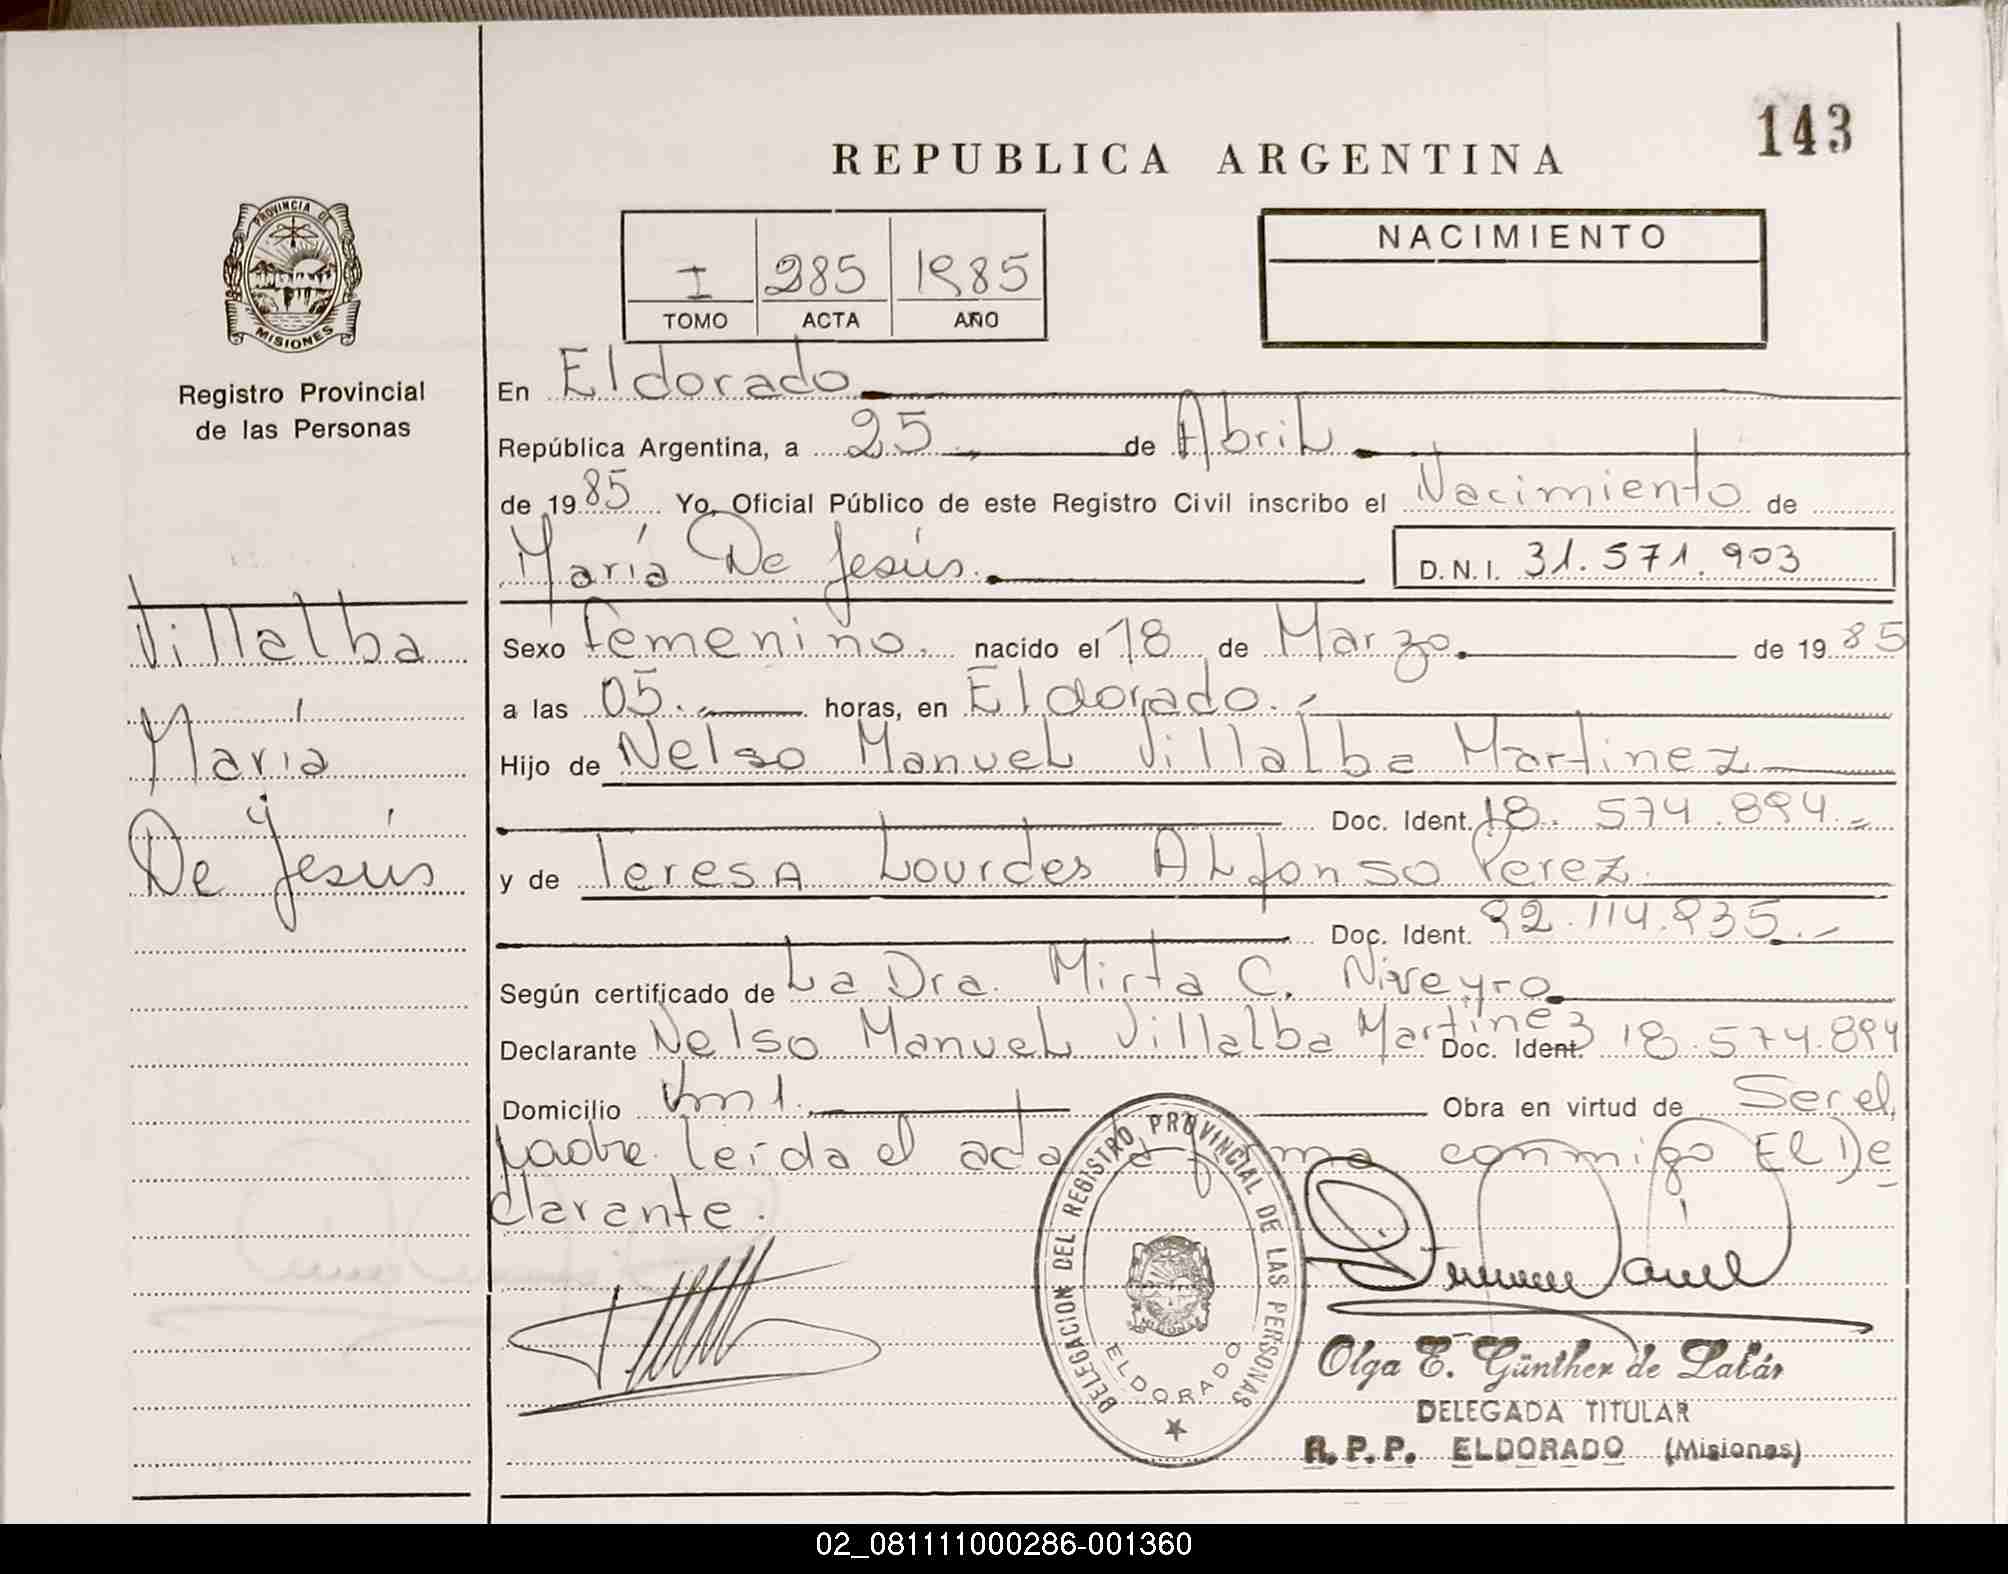 143
REPUBLICA ARGENTINA
PROVINCIA DE
MISIONES
Registro Provincial
de las Personas
I 285 1985
TOMO ACTA AÑO
NACIMIENTO
En Eldorado
República Argentina, a 25 de Abril
de 1985 Yo, Oficial Público de este Registro Civil inscribo el Nacimiento de
María De Jesús. D.N.I. 31.571.903
Villalba
María
De Jesús
Sexo femenino. nacido el 18 de Marzo de 1985
a las 05. horas, en Eldorado.
Hijo de Nelso Manuel Villalba Martinez
Doc. Ident. 18.574.894
y de Teresa Lourdes Alfonso Perez
Doc. Ident. 92.114.935
Según certificado de La Dra. Mirta C. Niveyro
Declarante Nelso Manuel Villalba Martinez Doc. Ident. 18.574.894
Domicilio km 1. Obra en virtud de Ser el
padre. leída el acta la firma conmigo El De
clarante.
DELEGACION DEL REGISTRO PROVINCIAL DE LAS PERSONAS
ELDORADO
Olga E. Günther de
DELEGADA TITULAR
R.P.P. ELDORADO (Misiones)
02_081111000286-001360